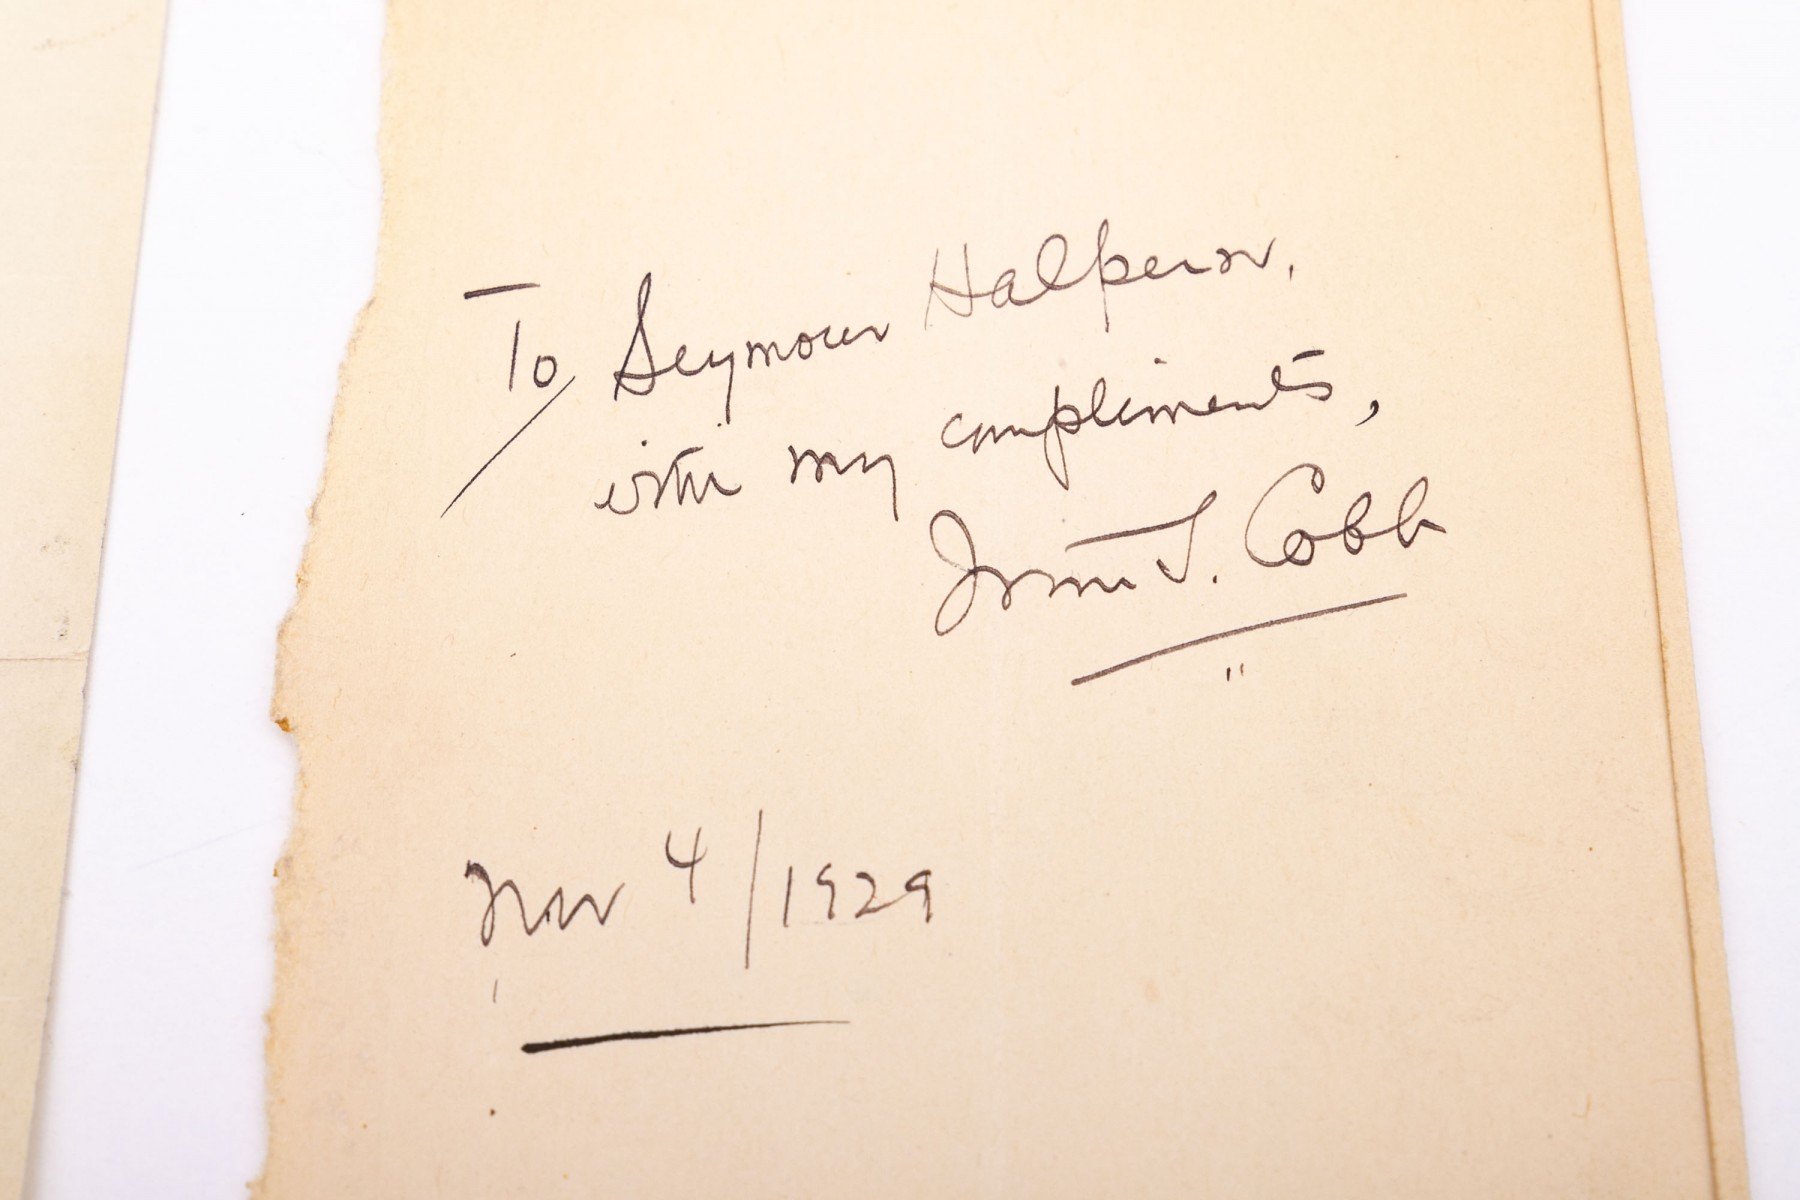 To Seymour Halpern,
with my compliments,
Irvin S. Cobb
Nov 4/1929